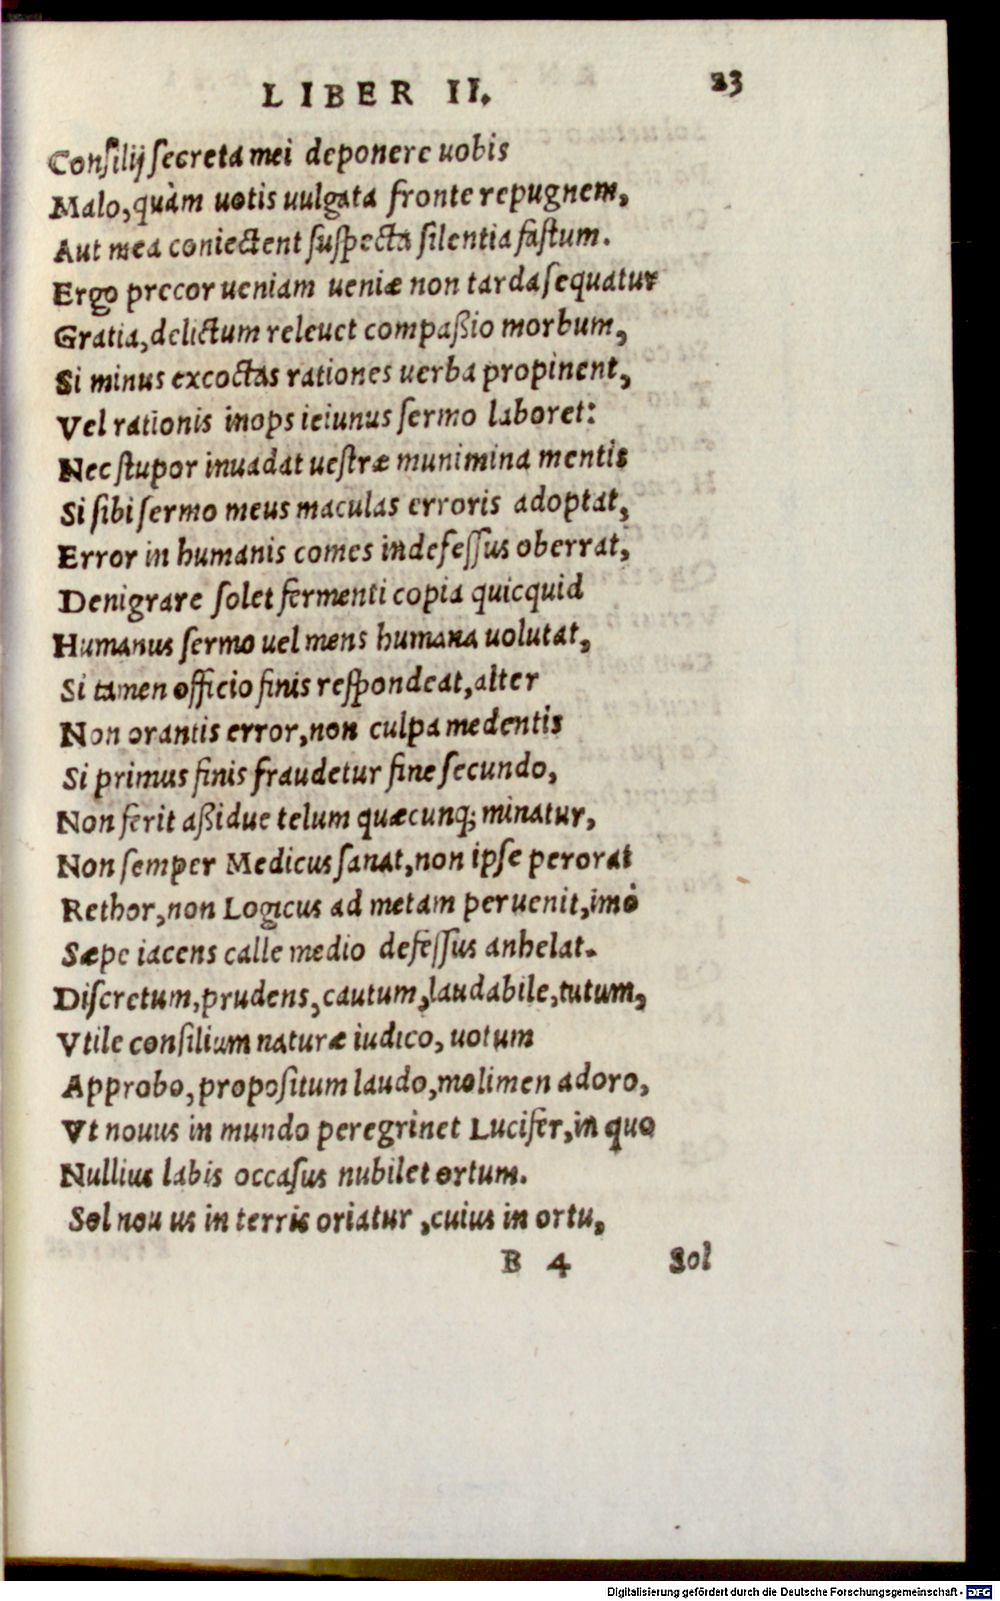 LIBER II. 23
Consilij secreta mei deponere uobis
Malo, quàm uotis uulgata fronte repugnem,
Aut mea coniectent suspecta silentia fastum.
Ergo precor ueniam ueniæ non tarda sequatur
Gratia, delictum releuet compaßio morbum,
Si minus excoctas rationes uerba propinent,
Vel rationis inops ieiunus sermo laboret:
Nec stupor inuadat uestræ munimina mentis
Si sibi sermo meus maculas erroris adoptat,
Error in humanis comes indefessus oberrat,
Denigrare solet fermenti copia quicquid
Humanus sermo uel mens humana uolutat,
Si tamen officio finis respondeat, alter
Non orantis error, non culpa medentis
Si primus finis fraudetur fine secundo,
Non ferit aßidue telum quæcunq; minatur,
Non semper Medicus sanat, non ipse perorat
Rethor, non Logicus ad metam peruenit, imò
Sæpe iacens calle medio defessus anhelat.
Discretum, prudens, cautum, laudabile, tutum,
Vtile consilium naturæ iudico, uotum
Approbo, propositum laudo, molimen adoro,
Vt nouus in mundo peregrinet Lucifer, in quo
Nullius labis occasus nubilet ortum.
Sol nou us in terris oriatur, cuius in ortu,
B 4 Sol
Digitalisierung gefördert durch die Deutsche Forschungsgemeinschaft - DFG